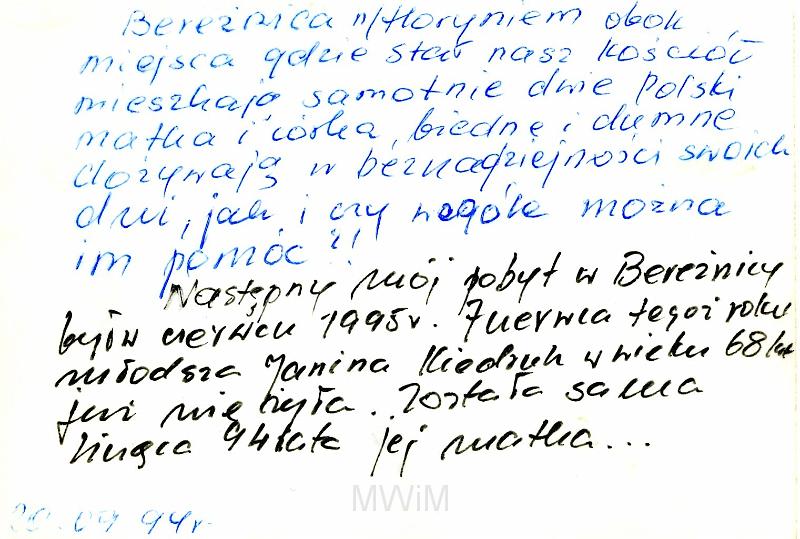 Bereźnica n/Horyniem obok
miejsca gdzie stał nasz kościół
mieszkają samotnie dwie Polski
matka i córka, biedne i dumne
dożywają w beznadziejności swoich
dni, jak i czy wogóle można
im pomóc?!
Następny mój pobyt w Bereźnicy
był w czerwcu 1995r. 7 czerwca tegoż roku
młodsza Janina Kiedruk w wieku 68 lat
już nie żyła. Została sama
licząca 94 lata jej matka...
MWiM
20.09 94r